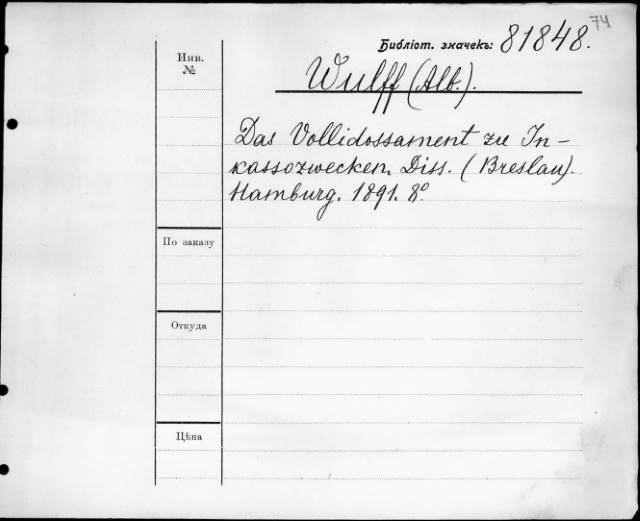 74
Библіот. значекъ: 81848.
Инв.
№
Wulff (Alb.).
Das Vollidossament zu In-
kassozwecken. Diss. (Breslau).
Hamburg. 1891. 8º
По заказу
Откуда
Цѣна